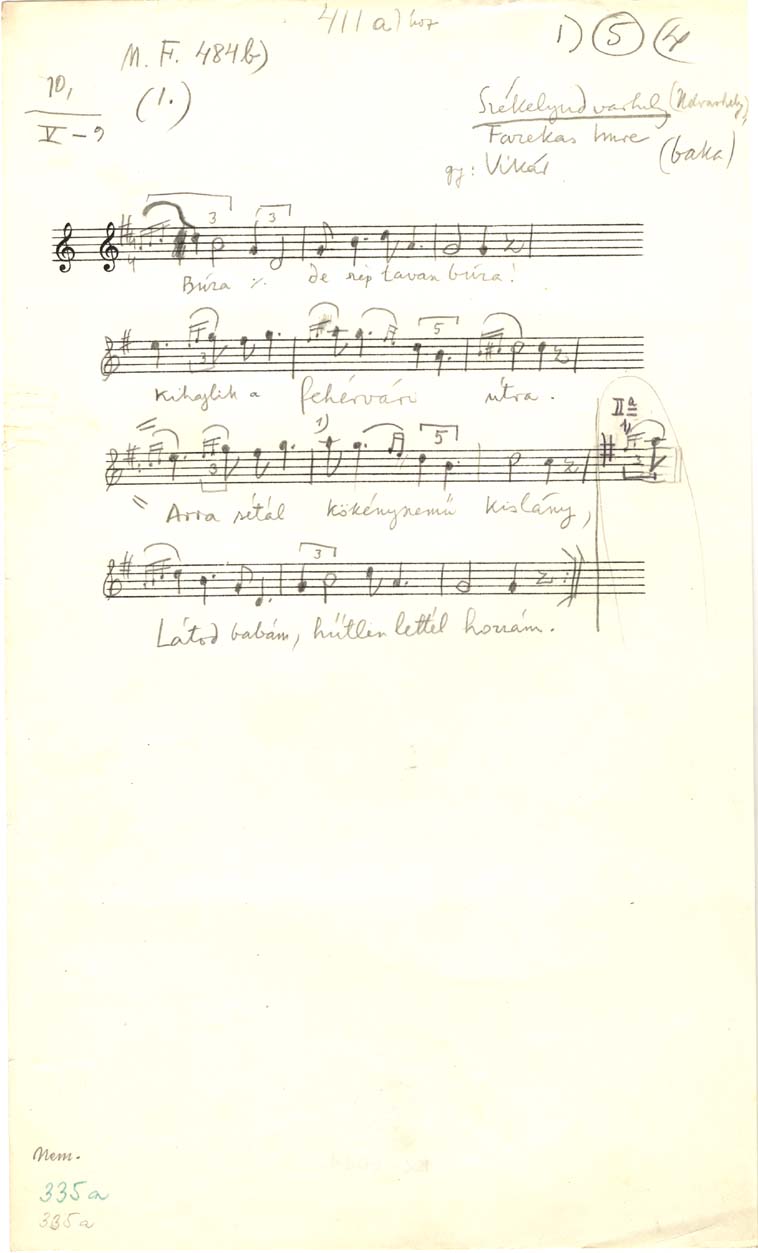 411a) hoz
1) 5 4
M. F. 484b)
10,
V – 9
(1.)
Székelyudvarhely (Udvarhely),
Fazekas Imre (baka)
gy: Vikár
3 3
Búza ./. de szép tavan búza!
3 5
Kihajlik a fehérvári útra.
IIa
1) 1)
3 5 3
Arra sétál kökényszemű kislány,
3
Látod babám, hűtlen lettél hozzám.
Nem.
335a
335a